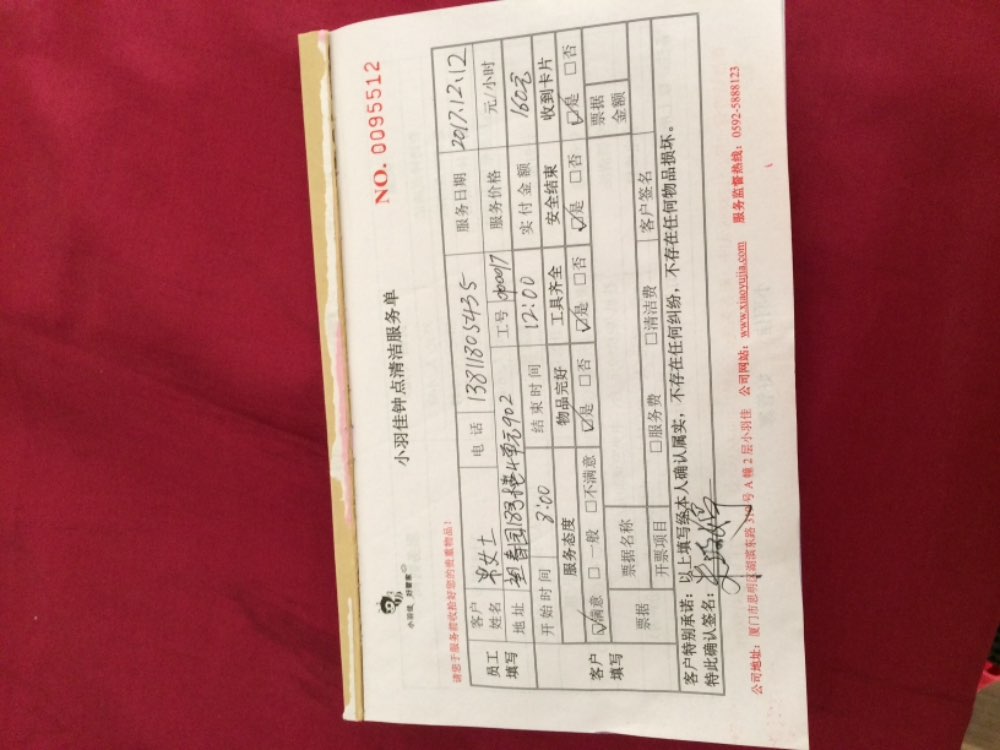 小羽佳 好管家
小羽佳钟点清洁服务单
NO. 0095512
请您于服务前收拾好您的贵重物品!
员工填写 客户姓名 女士 电话 13811805435 服务日期 2017.12.12
地址 183楼4单元902 工号 服务价格 元/小时
开始时间 8:00 结束时间 12:00 实付金额 160元
客户填写 服务态度 物品完好 工具齐全 安全结束 收到卡片
☑满意 □一般 □不满意 ☑是 □否 ☑是 □否 ☑是 □否 ☑是 □否
票据 票据名称 票据金额
开票项目 □服务费 □清洁费 客户签名
客户特别承诺:以上填写经本人确认属实,不存在任何纠纷,不存在任何物品损坏。
特此确认签名:
公司地址:厦门市思明区湖滨东路 号 A 幢 2 层小羽佳 公司网站:www.xiaoyujia.com 服务监督热线:0592-5888123